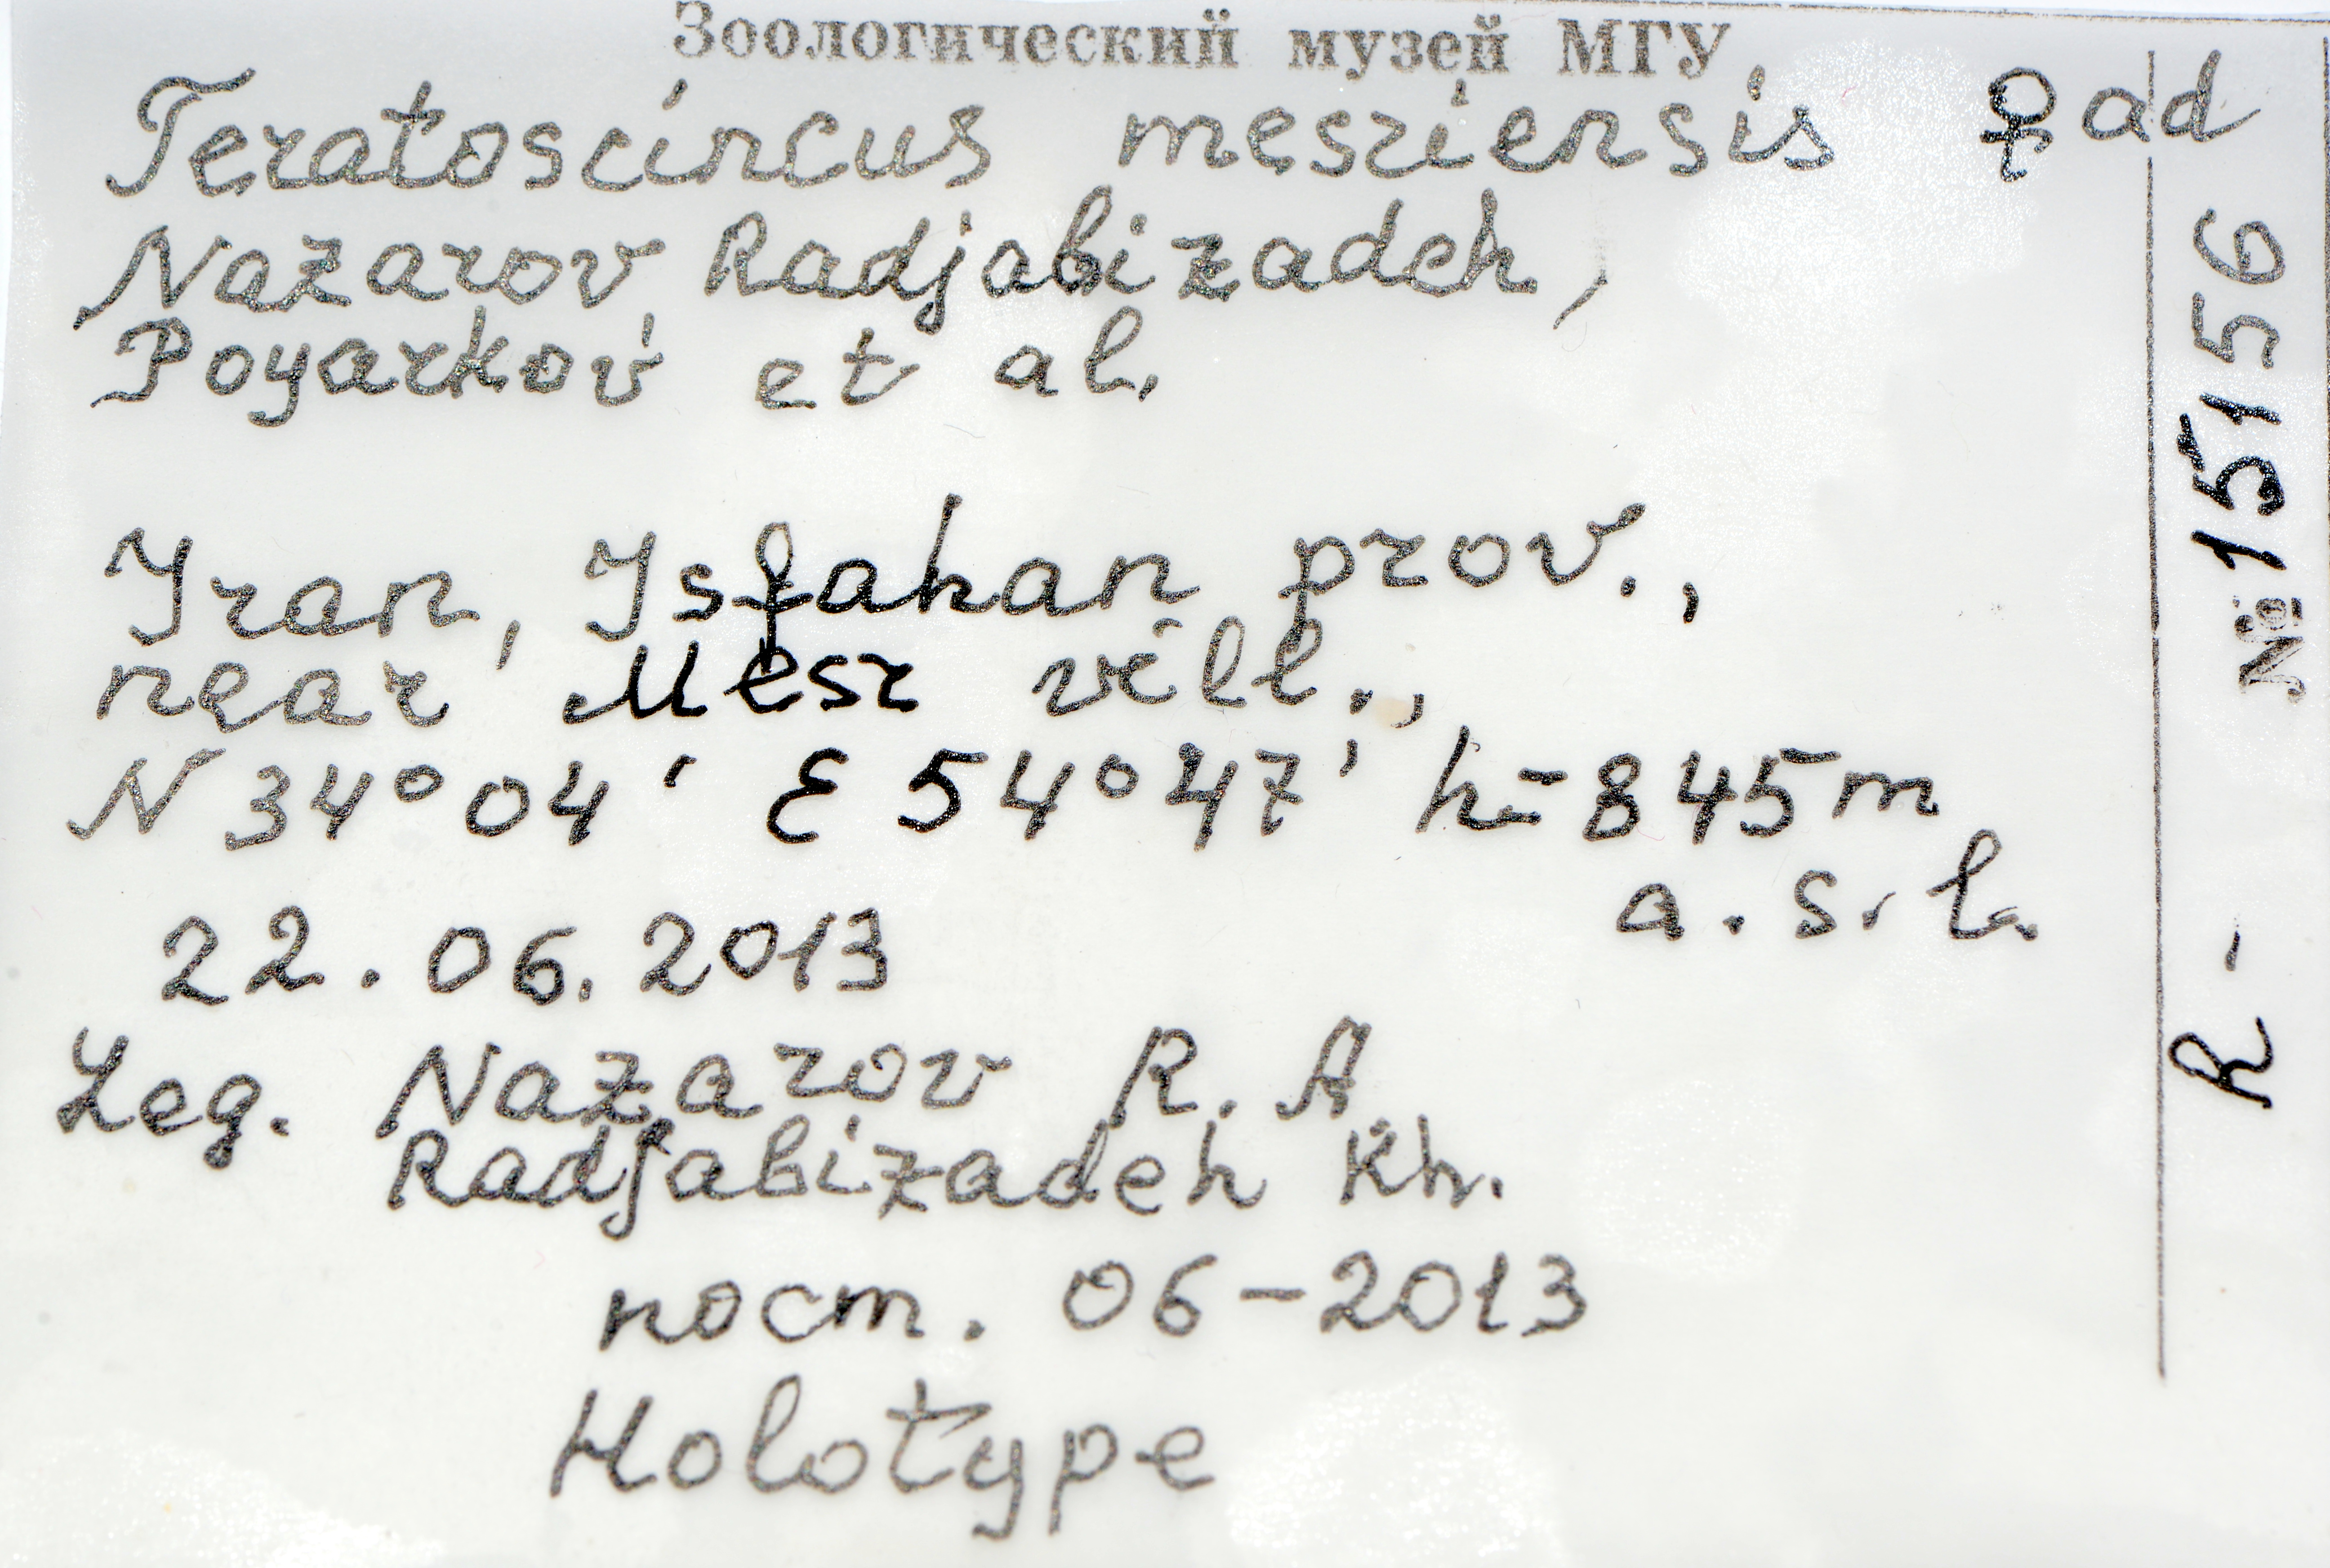 Зоологический музей МГУ
Teratoscincus mesriensis ♀ ad
Nazarov Radjabizadeh,
Poyarkov et al.
Iran, Isfahan prov.,
near Mesr vill.,
N 34°04' E 54°47' h=845m
a.s.l.
22.06.2013
Leg. Nazarov R. A.
Radjabizadeh Kh.
пост. 06-2013
Holotype
R - № 15156